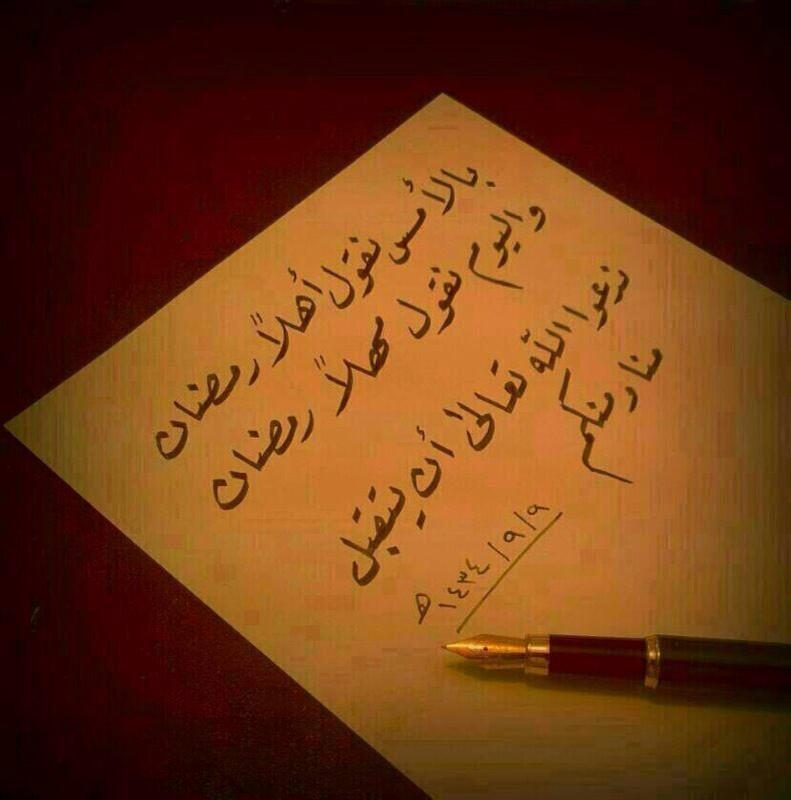 بالأمس نقول أهلاً رمضان
واليوم نقول مهلاً رمضان
ندعوا الله تعالى أن يتقبل
منا ومنكم
١٤٣٤/٩/٩ هـ